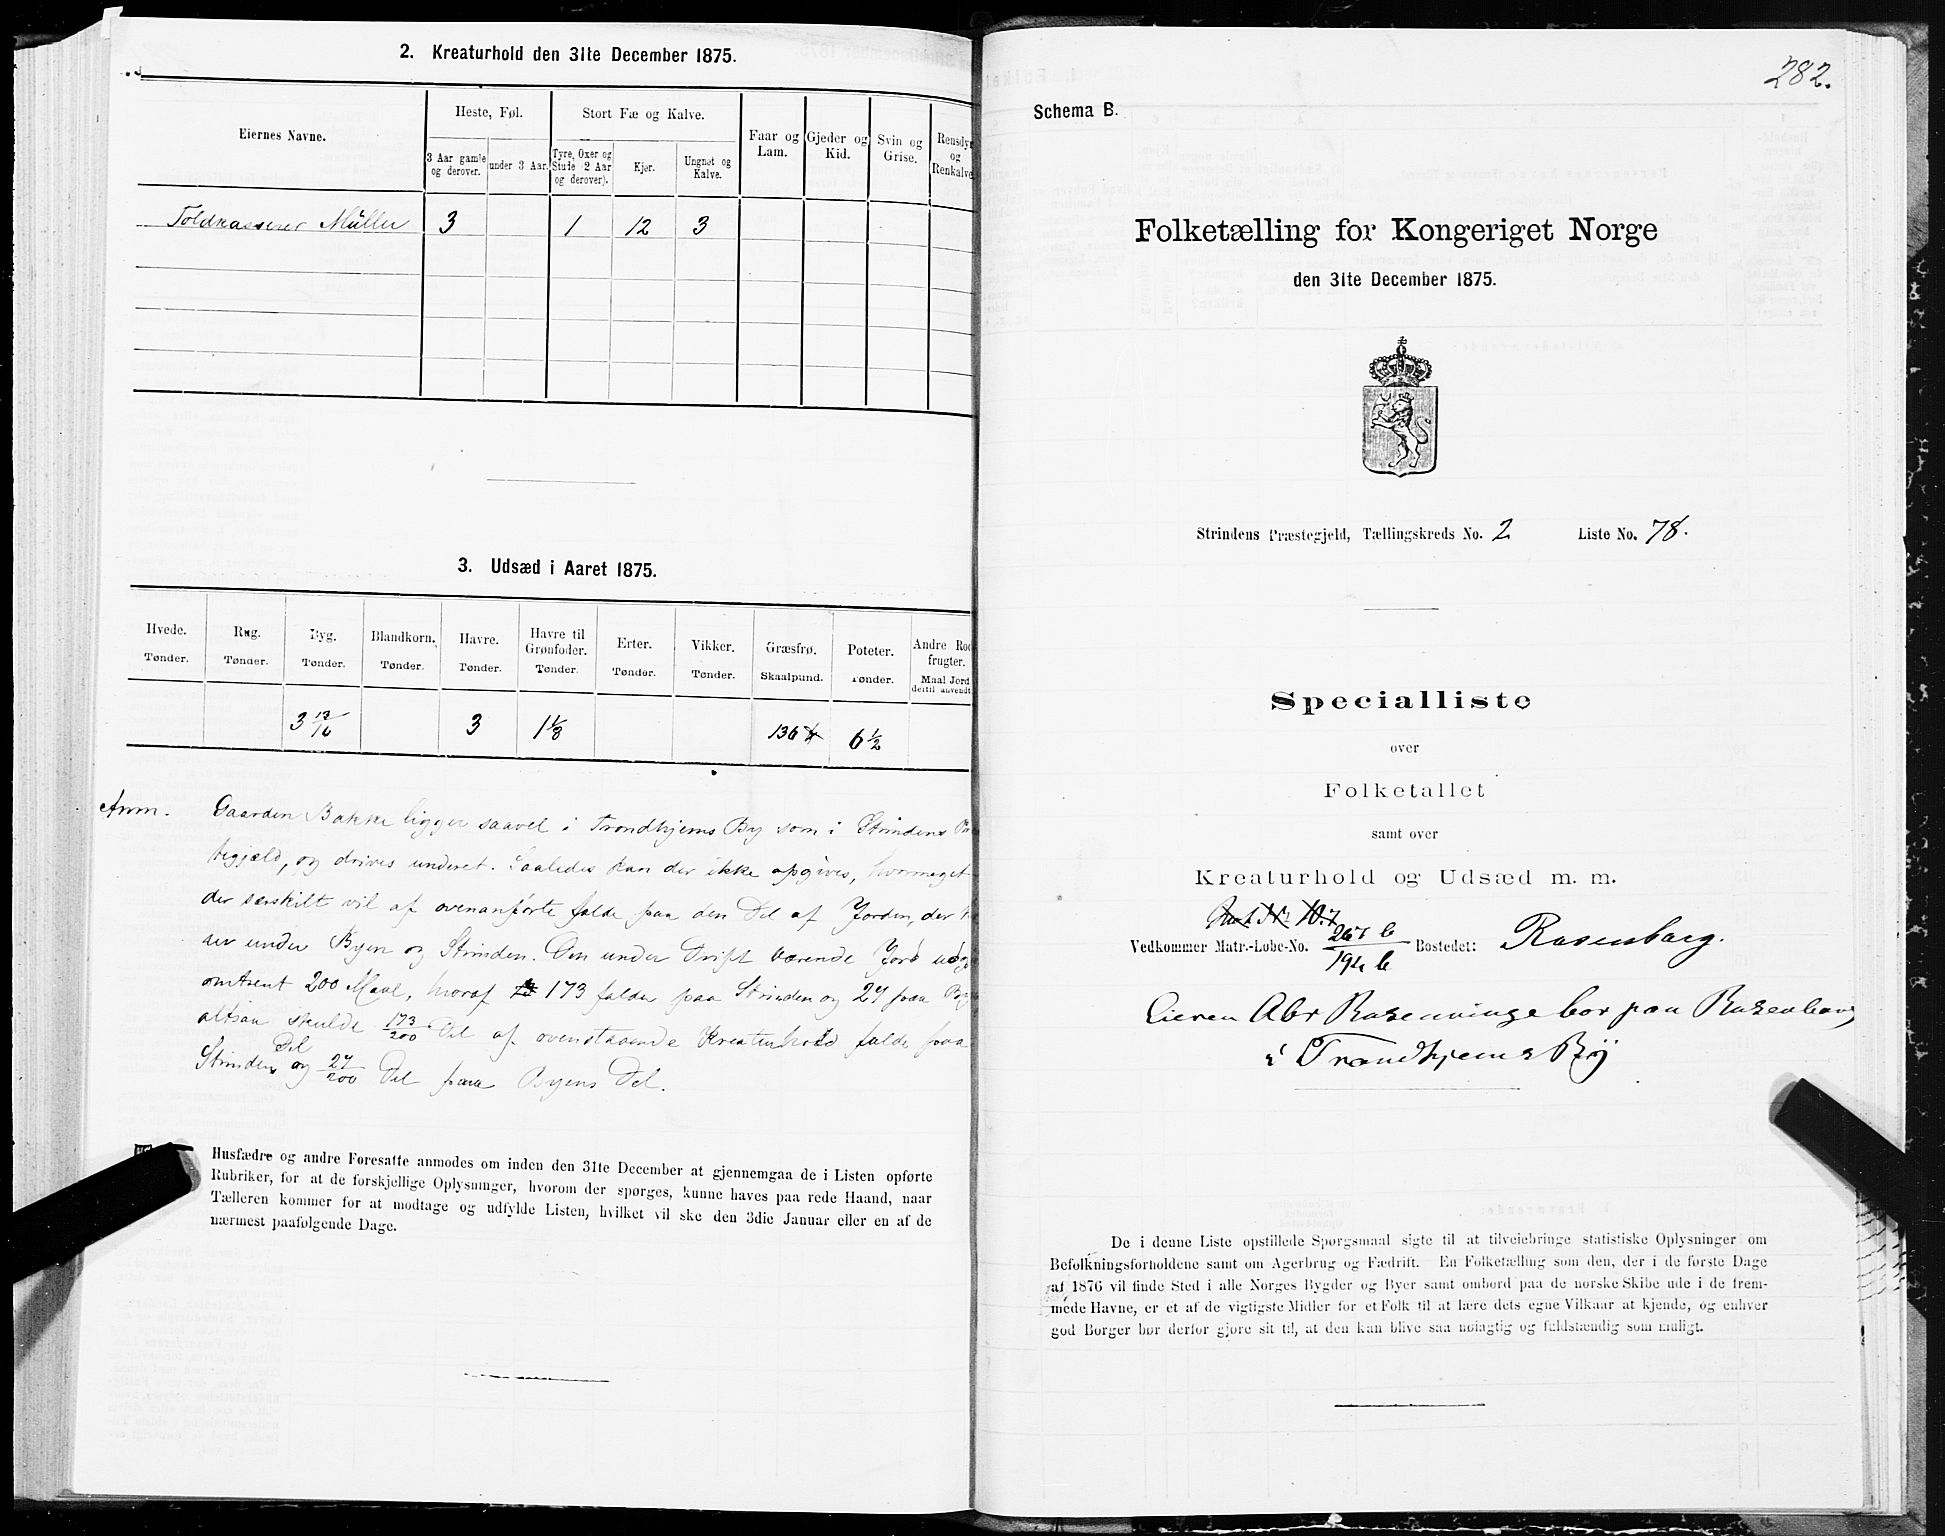 2. Kreaturhold den 31te December 1875.
Eiernes Navne.
Heste, Føl.
Stort Fæ og Kalve.
Faar og Lam.
Gjeder og Kid.
Svin og Grise.
Rensdyr og Renkalve
3 Aar gamle og derover.
under 3 Aar.
Tyre, Oxer og Stude 2 Aar og derover).
Kjer.
Ungnøt og Kalve.
Toldkasserer Müller 3 1 12 3
3. Udsæd i Aaret 1875.
Hvede. Rug. Byg. Blandkorn. Havre. Havre til Grønfoder. Erter. Vikker. Græsfrø. Poteter. Andre Ro frugter.
Tønder. Tønder. Tønder. Tønder. Tønder. Tønder. Tønder. Tønder. Skaalpund. Tønder. Maal Jord dertil anvendt
3 13/16 3 1 1/8 136 6 1/2
Anm. Gaarden Bakke ligger saavel i Trondhjems By som i Strindens
tegjæld, og drives underet. Saaledes kan der ikke opgives, hvormeget
der særskilt vil af ovenanførte falde paa den Del af Jorden, der
under Byen og Strinden. Den under Drift værende Jord
omtrent 200 Maal, hvoraf 173 falder paa Strinden og 27 paa
altsaa skulde 173/200 Del af ovenstaaende Kreaturhold falde paa
Strindens Del og 27/200 Del paa Byens Del.
Husfædre og andre Foresatte anmodes om inden den 31te December at gjennemgaa de i Listen opførte
Rubriker, for at de forskjellige Oplysninger, hvorom der spørges, kunne haves paa rede Haand, naar
Tælleren kommer for at modtage og udfylde Listen, hvilket vil ske den 3die Januar eller en af de
nærmest paafølgende Dage.
282.
Schema B.
Folketælling for Kongeriget Norge
den 31te December 1875.
Strindens Præstegjeld, Tællingskreds No. 2 Liste No. 78.
Specialliste
over
Folketallet
samt over
Kreaturhold og Udsæd m. m.
Vedkommer Matr.-Løbe-No. 267 b / 194 b Bostedet: Rosenborg.
Eieren Abr Rosenvinge bor paa Rosenborg
i Trondhjems By
De i denne Liste opstillede Spørgsmaal sigte til at tilveiebringe statistiske Oplysninger om
Befolkningsforholdene samt om Agerbrug og Fædrift. En Folketælling som den, der i de første Dage
af 1876 vil finde Sted i alle Norges Bygder og Byer samt ombord paa de norske Skibe ude i de frem-
mede Havne, er et af de vigtigste Midler for et Folk til at lære dets egne Vilkaar at kjende, og enhver
god Borger bør derfor gjøre sit til, at den kan blive saa nøiagtig og fuldstændig som muligt.